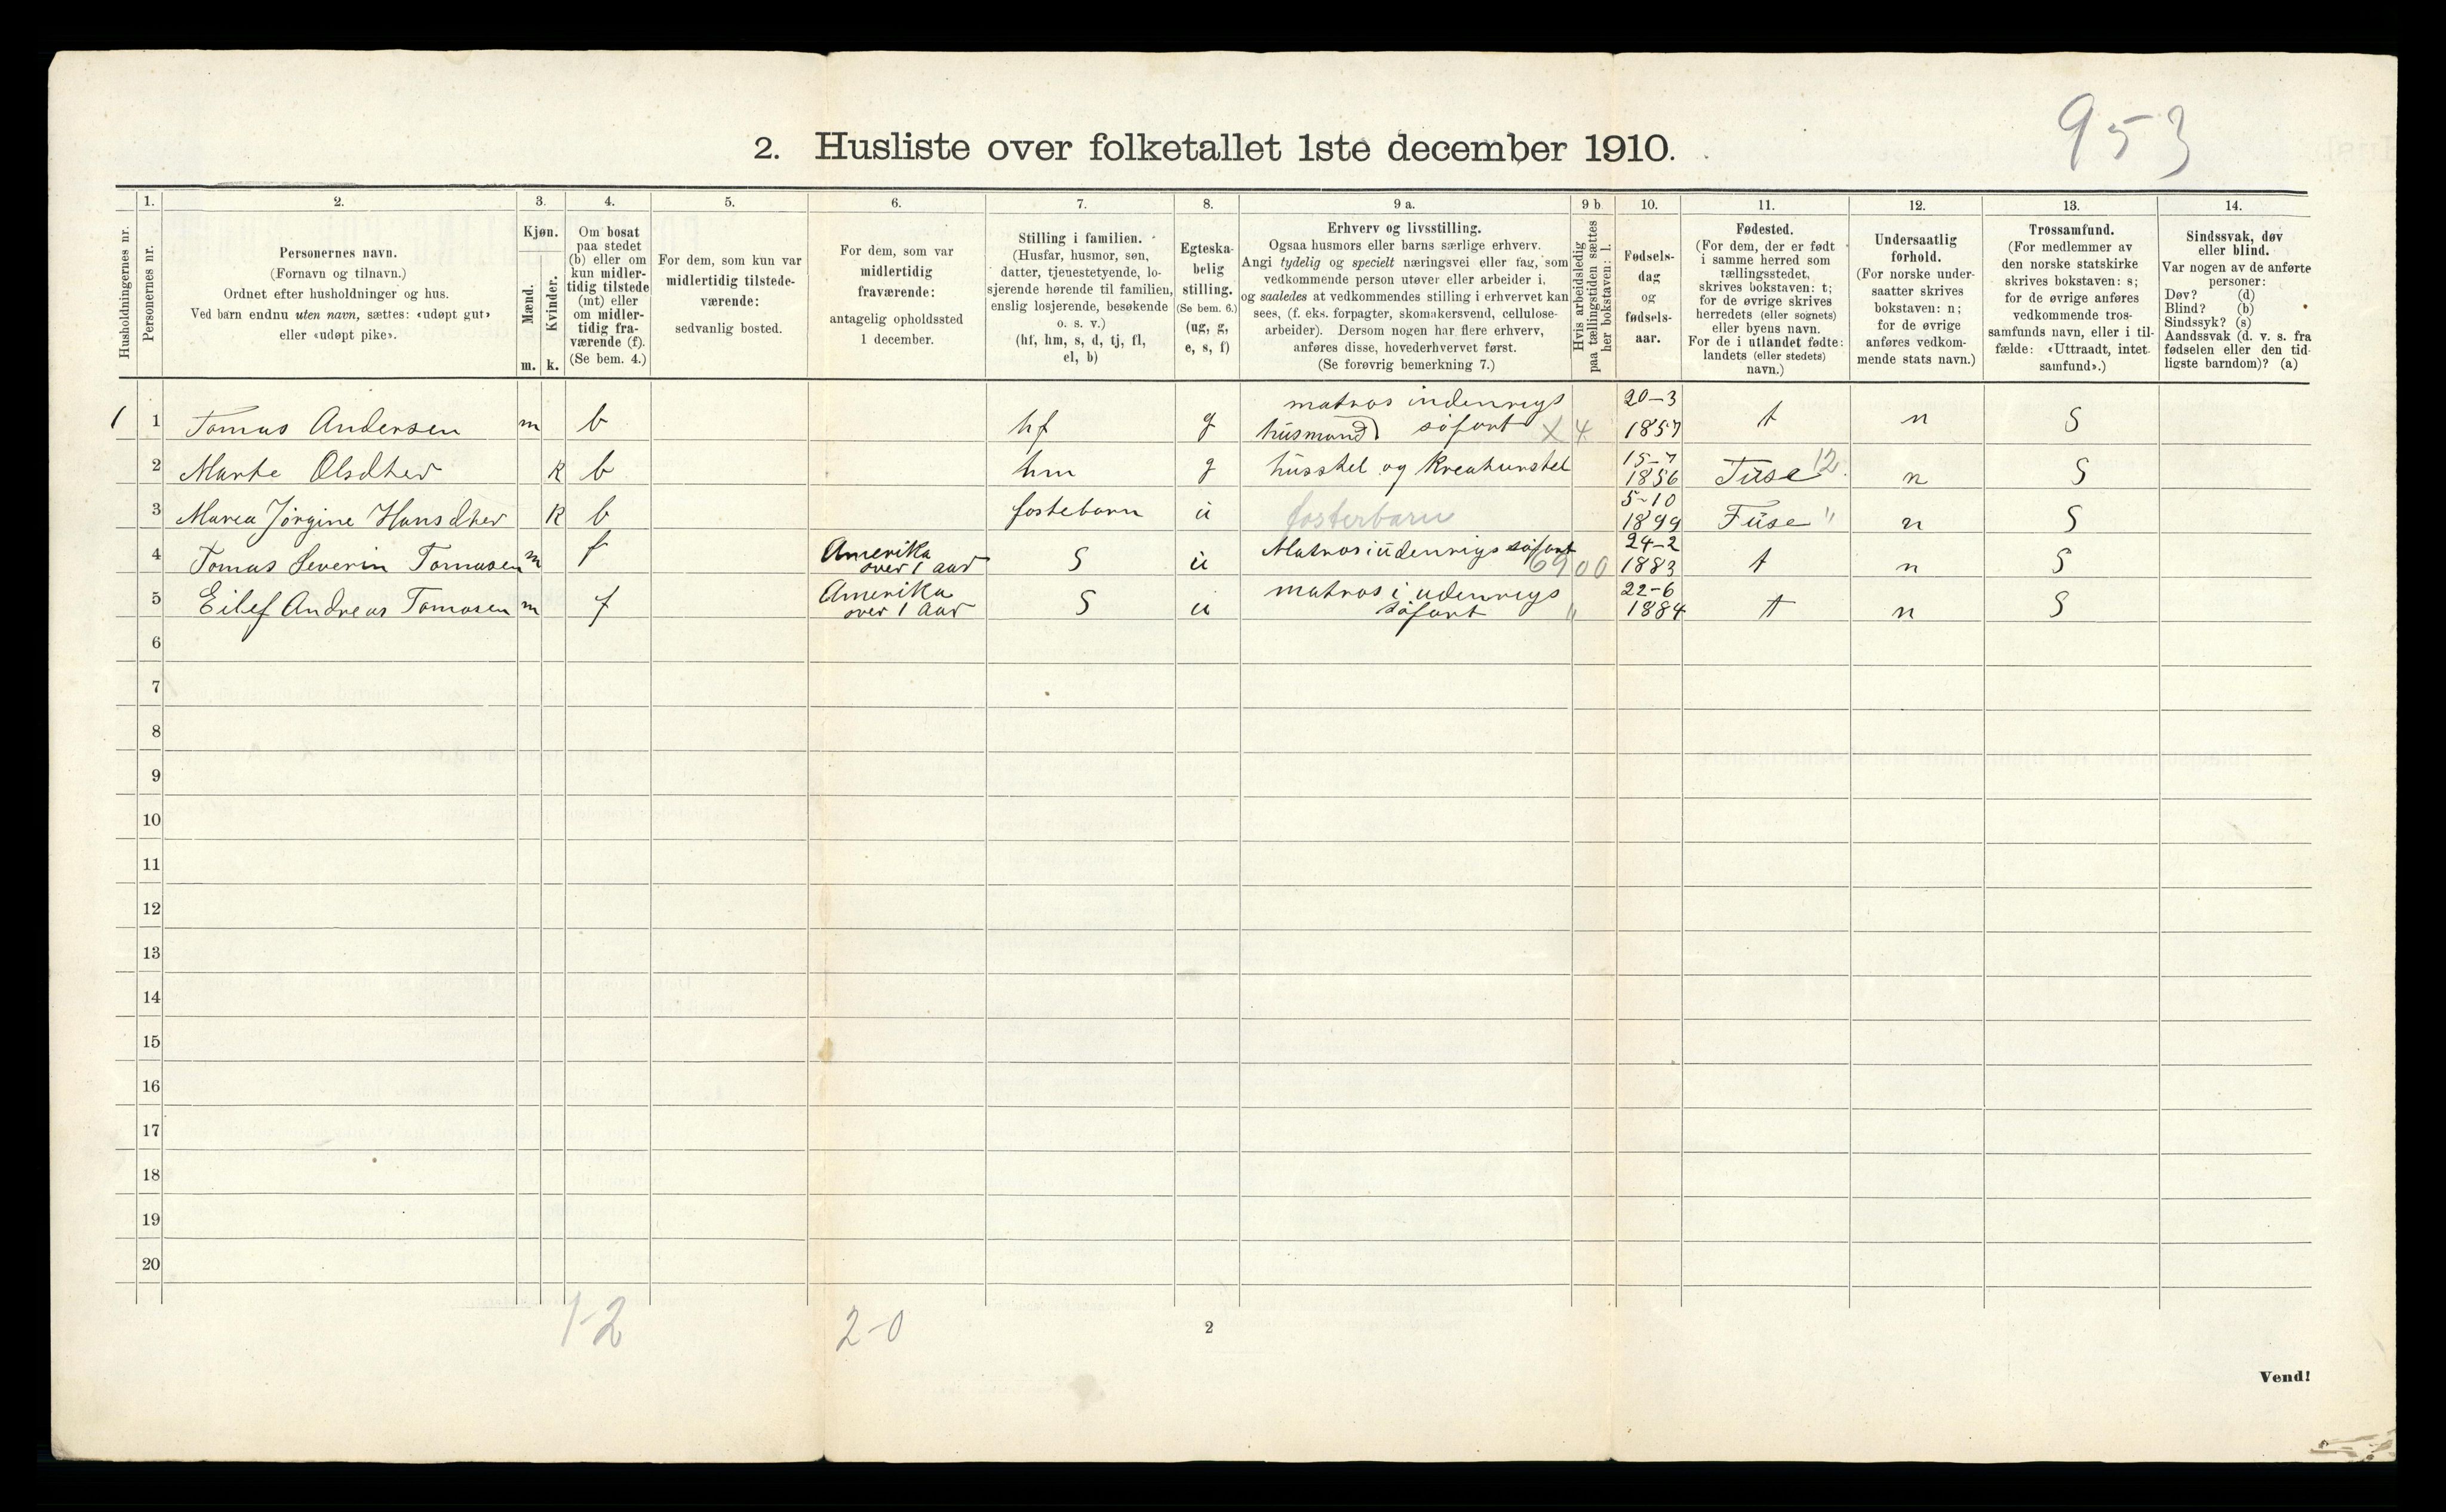 953
2. Husliste over folketallet 1ste december 1910.
Husholdningernes nr.
1.
Personernes nr.
2.
Personernes navn.
(Fornavn og tilnavn.)
Ordnet efter husholdninger og hus.
Ved barn endnu uten navn, sættes: «udøpt gut»
eller «udøpt pike».
3.
Kjøn.
Mænd.
Kvinder.
m. k.
4.
Om bosat
paa stedet
(b) eller om
kun midler-
tidig tilstede
(mt) eller
om midler-
tidig fra-
værende (f).
(Se bem. 4.)
5.
For dem, som kun var
midlertidig tilstede-
værende:
sedvanlig bosted.
6.
For dem, som var
midlertidig
fraværende:
antagelig opholdssted
1 december.
7.
Stilling i familien.
(Husfar, husmor, søn,
datter, tjenestetyende, lo-
sjerende hørende til familien,
enslig losjerende, besøkende
o. s. v.)
(hf, hm, s, d, tj, fl,
el, b)
8.
Egteska-
belig
stilling.
(Se bem. 6.)
(ug, g,
e, s, f)
9 a.
Erhverv og livsstilling.
Ogsaa husmors eller barns særlige erhverv.
Angi tydelig og specielt næringsvei eller fag, som
vedkommende person utøver eller arbeider i,
og saaledes at vedkommendes stilling i erhvervet kan
sees, (f. eks. forpagter, skomakersvend, cellulose-
arbeider). Dersom nogen har flere erhverv,
anføres disse, hovederhvervet først.
(Se forøvrig bemerkning 7.)
9 b
Hvis arbeidsledig
paa tællingstiden sættes
her bokstaven: l.
10.
Fødsels-
dag
og
fødsels-
aar.
11.
Fødested.
(For dem, der er født
i samme herred som
tællingsstedet,
skrives bokstaven: t;
for de øvrige skrives
herredets (eller sognets)
eller byens navn.
For de i utlandet fødte:
landets (eller stedets)
navn.)
12.
Undersaatlig
forhold.
(For norske under-
saatter skrives
bokstaven: n;
for de øvrige
anføres vedkom-
mende stats navn.)
13.
Trossamfund.
(For medlemmer av
den norske statskirke
skrives bokstaven: s;
for de øvrige anføres
vedkommende tros-
samfunds navn, eller i til-
fælde: «Uttraadt, intet
samfund».)
14.
Sindssvak, døv
eller blind.
Var nogen av de anførte
personer:
Døv? (d)
Blind? (b)
Sindssyk? (s)
Aandssvak (d. v. s. fra
fødselen eller den tid-
ligste barndom)? (a)
1 1 Tomas Andersen m b hf g matros indenrigs
husmand søfart X 4 20-3
1857 t n S
2 Marte Olsdter K b hm g husstel og Kreaturstel 15-7
1856 Füse 12 n S
3 Marea Jørgine Hansdter K b fostebarn ü fosterbarn 5-10
1899 Füse " n S
4 Tomas Severin Tomasen m f Amerika
over 1 aar S ü Matros i üdenrigs søfart
6900 24-2
1883 t n S
5 Eilef Andreas Tomasen m f Amerika
over 1 aar S u matros i udenrigs
søfart " 22-6
1884 t n S
6
7
8
9
10
11
12
13
14
15
16
17
18
19
20
1-2 2-0
2
Vend!